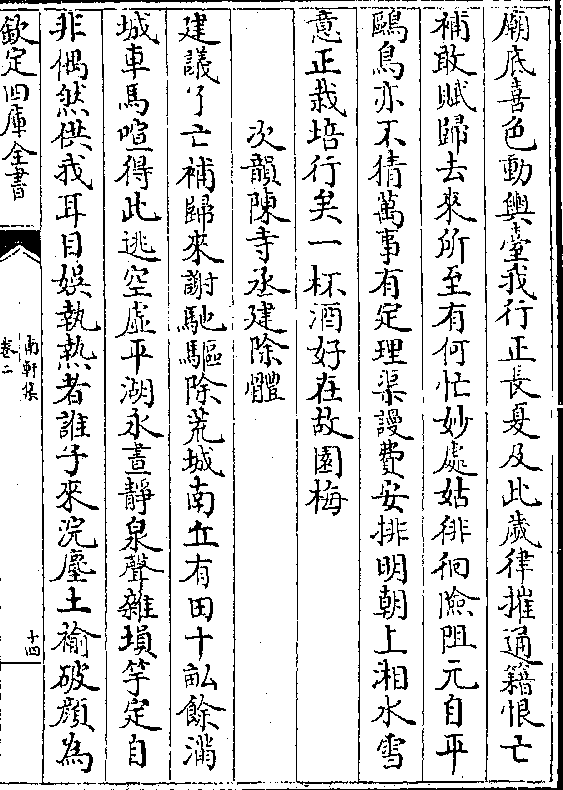 廟底喜色動輿臺我行正長夏及此歲律摧通籍恨亡
補敢賦歸去來所至有何忙妙處姑徘徊險阻元自平
鷗鳥亦不猜萬事有定理渠謾費安排明朝上湘水雪
意正栽培行矣一杯酒好在故園梅
次韻陳寺丞建除體
建議了亡補歸來謝馳驅除荒城南丘有田十畝餘滿
城車馬喧得此逃空虛平湖永晝靜泉聲雜塤竽定自
非偶然供我耳目娛執熱者誰子來浣塵土褕破顔為
欽定四庫全書
南軒集
卷二
十四